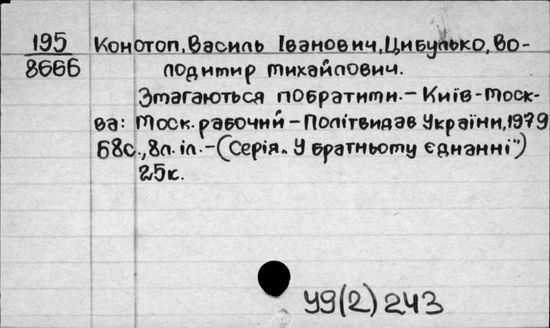 195
8666
Конотоп, Василь Іванович, Цибулько, Во-
лодимир Михайлович.
Змагаються побратими. – Київ-Моск-
ва: Моск. рабочий – Політвидав України, 1979
68с., 8л. іл. – (Серія „У братньому єднанні")
25к.
У9(2)243